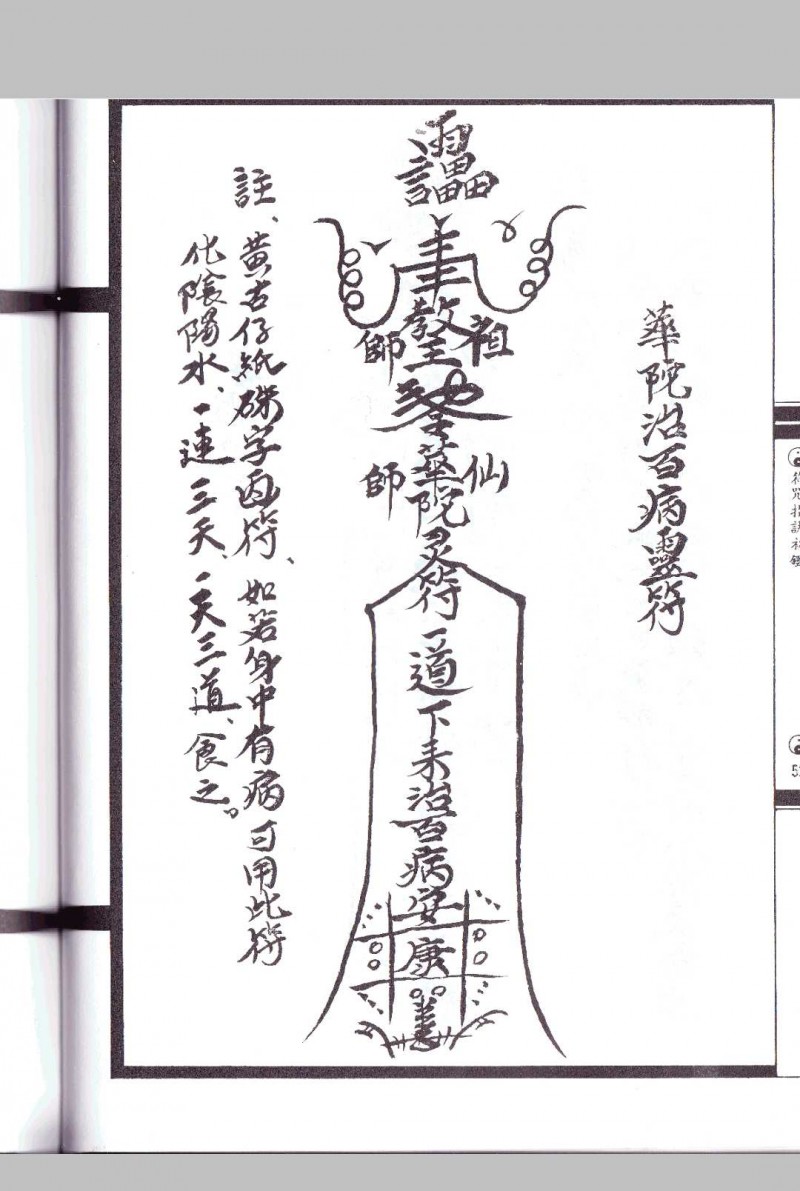 華陀治百病靈符
奉
教主
祖師
華陀灵符一道下來治百病安康
仙師
註、黃古仔紙硃字画符、如若身中有病可用此符
化陰陽水、一連三天、一天三道、食之。